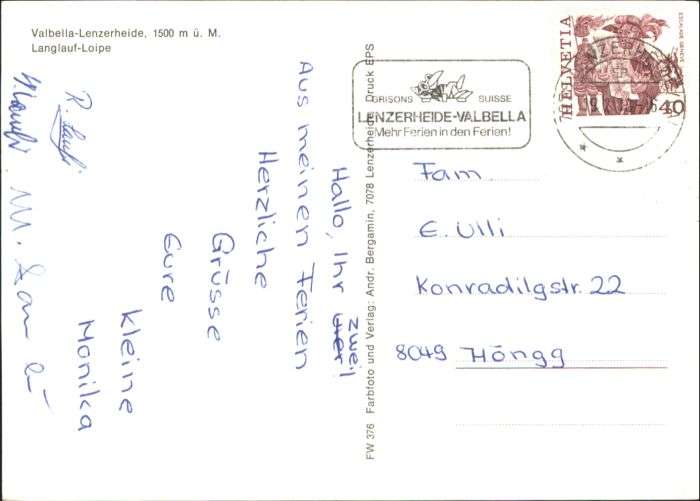 Valbella-Lenzerheide, 1500 m ü. M.
Langlauf-Loipe
Hallo, Ihr zwei!
Aus meinen Ferien
Herzliche
Grüsse
Eure
Kleine
Monika
R.
M.
FW 376 Farbfoto und Verlag: Andr. Bergamin, 7078 Lenzerheide Druck EPS
GRISONS SUISSE
LENZERHEIDE-VALBELLA
Mehr Ferien in den Ferien!
HELVETIA
ESCALADE GENÈVE
40
Fam
E. Ulli
Konradilgstr. 22
8049 Höngg